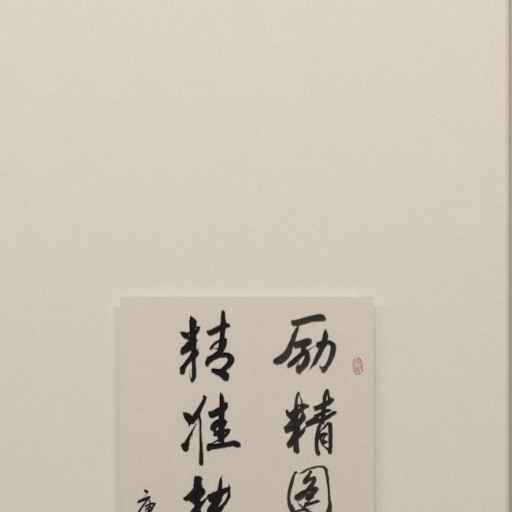 励精图
精准扶